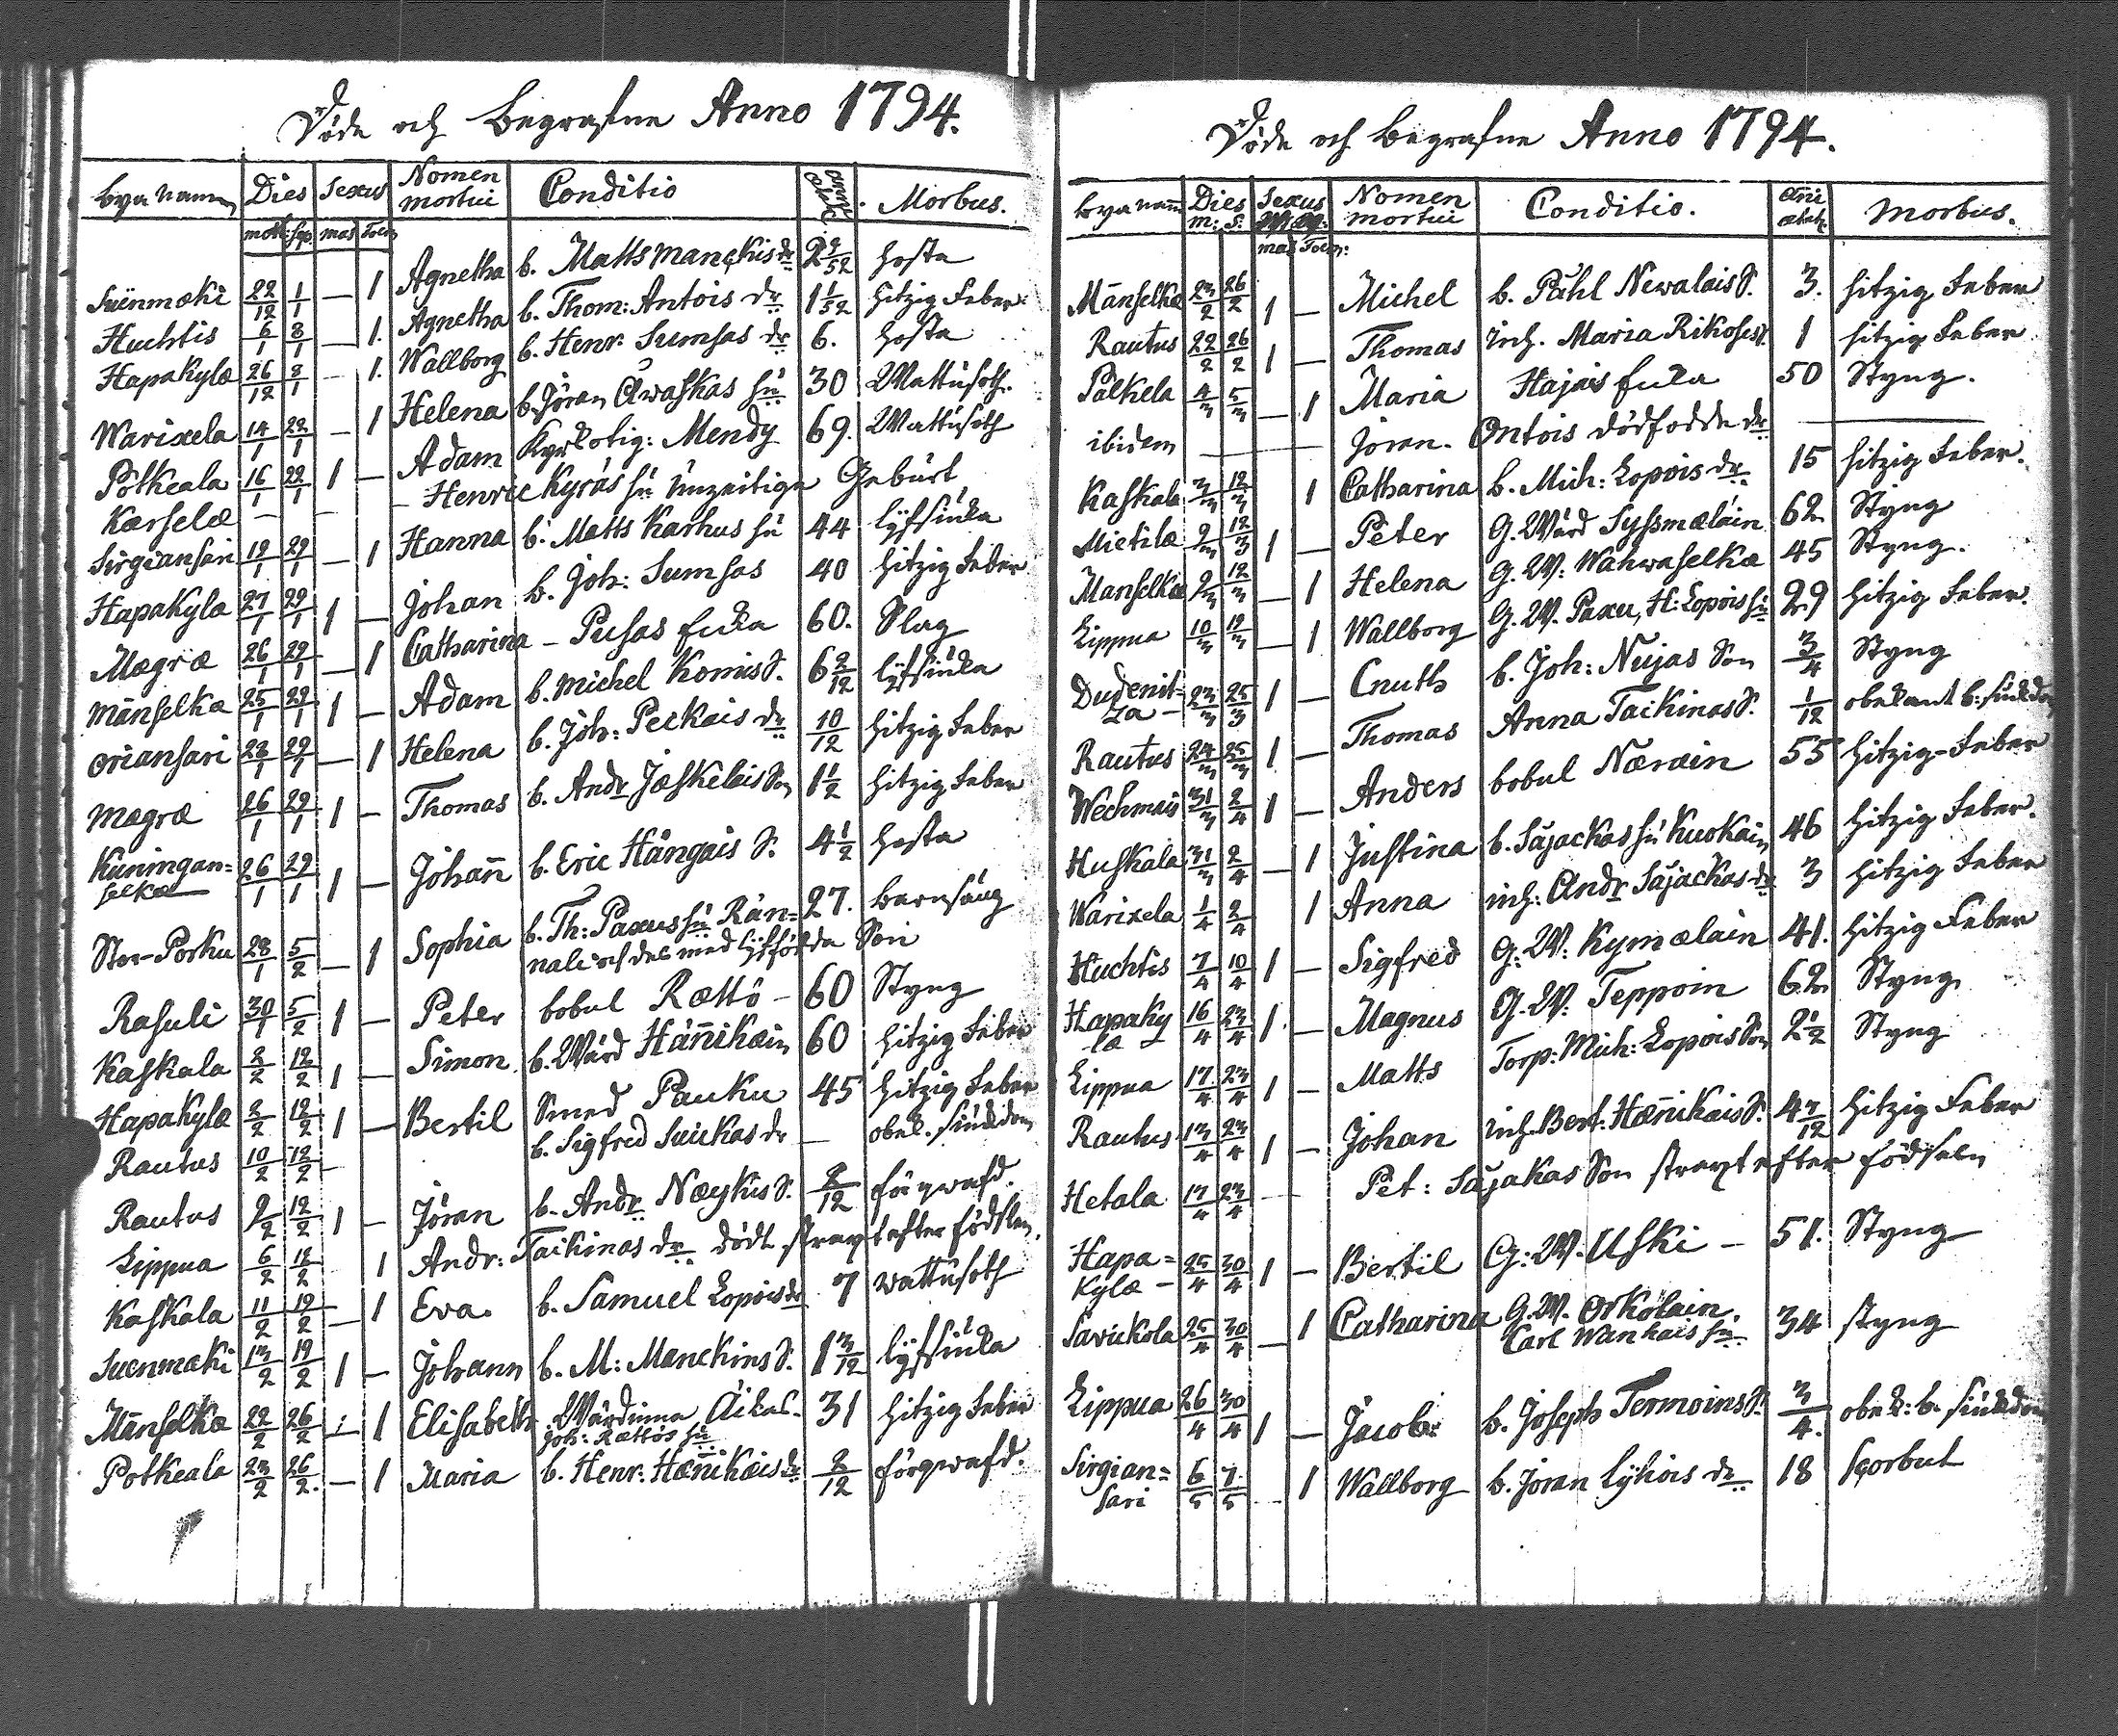 Döde och Begrafne Anno 1794.
Byn Namn Dies Sexus Nomen mortui Conditio anni ætat. Morbus.
mort: sep. mas Foem
Suënmæki 22/12 1/1 — 1 Agnetha b. Matts Manckis dr 2 2/52 hosta
Huchtis 6/1 8/1 — 1. Agnetha b. Thom: Antois dr 1 1/52 hitzig Feber
Hapakylæ 26/12 8/1 — 1. Wallborg b. Henr. Sumsas dr 6. hosta
Warixela 14/1 22/1 — 1 Helena b. Jöran Awaskas hu 30 Wattusoth.
Pölkeala 16/1 22/1 1 — Adam Kyrkotig: Mendy 69. Wattusoth
Kærselæ — — — Henric Kyrös hu unzeitige Geburt
Sirgiansari 19/1 29/1 — 1 Hanna b. Matts Karhus hu 44 lyfsiuka
Hapakylæ 27/1 29/1 1 — Johan b. Joh: Sumsas 40 hitzig Feber
Mægræ 26/1 29/1 — 1 Catharina — Pusas Enka 60. Slag
Mänselkæ 25/1 29/1 1 — Adam b. Michel Komis S. 6 2/12 lyfsiuka
Oriansari 28/1 29/1 — 1 Helena b. Joh: Peckais dr 10/12 hitzig Feber
Mægræ 26/1 29/1 1 — Thomas b. Andr Jæskelais Son 1 1/2 hitzig Feber
Kuningan=
selkæ 26/1 29/1 1 — Johan̄ b. Eric Hångais S. 4 1/2 hosta
Stor-Porku 28/1 5/2 — 1 Sophia b. Th: Paxus hu Rän= 27. barnsäng
nali och des med lijfförda Son
Rasuli 30/1 5/2 1 — Peter bobul Rættö — 60 Styng
Kaskala 2/2 12/2 1 — Simon b. Wärd Hän̄ikæin 60 hitzig Feber
Hapakylæ 2/2 12/2 1 — Bertil Smed Pauku 45 hitzig Feber
Rautus 10/2 12/2 b. Sigfred Suikas dr — obek. siukdom
Rautus 9/2 12/2 1 — Jöran b. Andr Næykis S. 2/12 förqwafd.
Lippua 6/2 12/2 1 Andr: Taikinas dr dödt straxt efter födslen.
Kaskala 11/2 19/2 — 1 Eva b. Samuel Lopois dr 7 wattusoth
Suenmæki 13/2 19/2 1 — Johann b. M: Manckins S. 1 3/12 lyfsiuka
Mänselkæ 22/2 26/2 1 Elisabeth Wärdinna Äikas 31 hitzig Feber
Joh: Rættös hu
Potkeala 23/2 26/2. — 1 Maria b. Henr: Hæn̄ikæis dr 2/12 förqwafd.
Döde och Begrafne Anno 1794.
Bya namn Dies Sexus Nomen mortui Conditio. Añi ætat. Morbus.
m: S. mas Foem:
Mänselkæ 23/2 26/2 1 — Michel b. Påhl Newalais S. 3. hitzig Feber
Rautus 22/2 26/2 1 — Thomas inh. Maria Rikoses S. 1 hitzig Feber
Palkela 4/3 5/3 — 1 Maria Hajais Enka 50 Styng.
ibidem — — Jöran Ontois dödfödde dr
Kaskala 3/3 12/3 1 Catharina b. Mich: Lopois dr 15 hitzig Feber.
Mietilæ 9/3 12/3 1 — Peter G. Wärd Syssmæläin 62 Styng
Manselkæ 9/3 12/3 — 1 Helena G. W: Wahwaselkæ 45 Styng.
Lippua 10/3 19/3 — 1 Wallborg G. W. Paxu, H: Lopois hu 29 hitzig Feber.
Dudenit=
za — 23/3 25/3 1 — Cnuth b. Joh: Nujas Son 3/4 Styng
Rautus 24/3 25/3 1 — Thomas Anna Taikinas S. 1/12 obekant b: siukdom
Wechmais 31/3 2/4 1 — Anders bobul Næräin 55 hitzig-Feber
Huskala 31/3 2/4 — 1 Justina b. Säjackas hu Kuokain 46 hitzig Feber.
Warixela 1/4 2/4 1 Anna inh: Andr Säjackas dr 3 hitzig Feber
Huchtis 7/4 10/4 1 — Sigfred G: W: Kymæläin 41. hitzig Feber
Hapaky
læ 16/4 23/4 1. — Magnus G. W: Teppoin 62 Styng
Lippua 17/4 23/4 1 — Matts Torp: Mich: Lopois Son 2 1/2 Styng
Rautus 13/4 23/4 1 — Johan inh. Bert: Hæn̄ikais S. 4 7/12 hitzig Feber
Hetala 17/4 23/4 Pet: Säjakas Son straxt efter födseln
Hapa=
kylæ — 25/4 30/4 1 — Bertil G: W. Uski — 51. Styng
Savikola 25/4 30/4 — 1 Catharina G. W. Orkolain 34 styng
Carl Wanhais hu
Lippua 26/4 30/4 1 — Jacob b. Joseph Termoins S. 3/4. obek: b. siukdom
Sirgian=
sari 6/5 7/5 1 Wallborg b. Jöran Lyhöis dr 18 scorbut